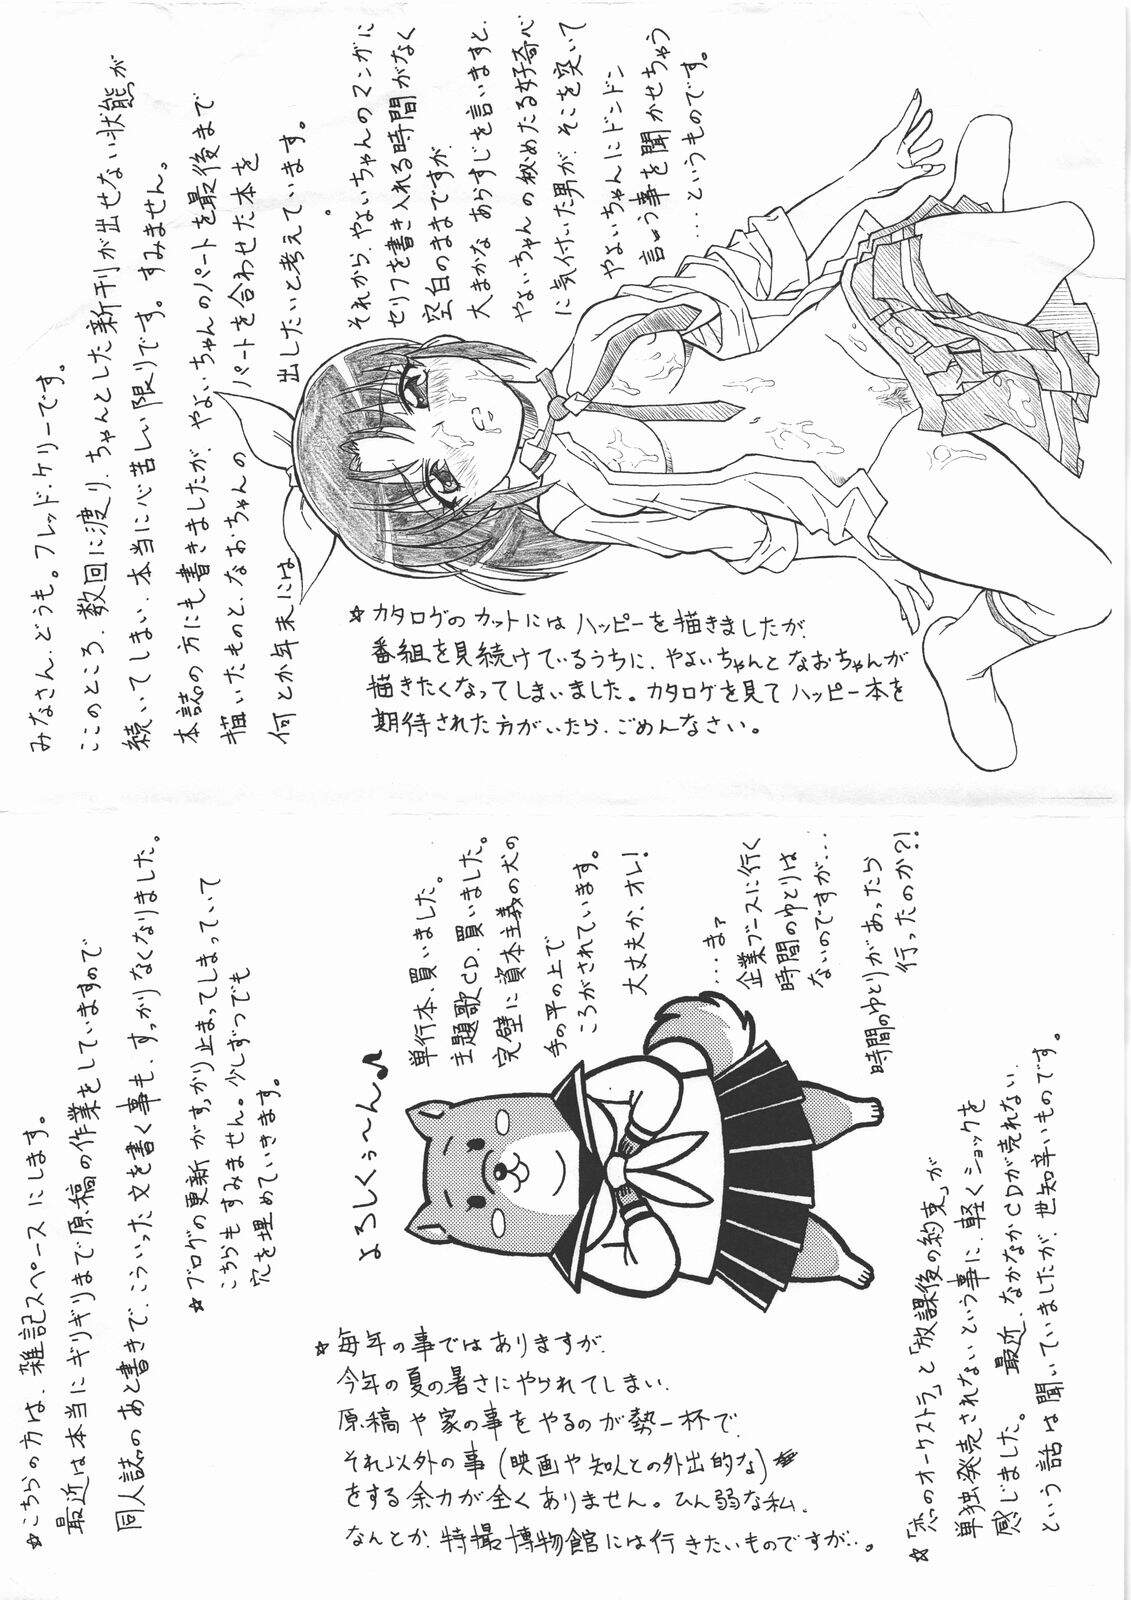 みなさん、どうも。フレッド・ケリーです。
ここのところ、数回に渡り、ちゃんとした新刊が出せない状態が
続いてしまい、本当に心苦しい限りです。すみません。
本誌の方にも書きましたが、やよいちゃんのパートを最後まで
描いたものと、なおちゃんのパートを合わせた本を
何とか年末には出したいと考えています。
それから、やよいちゃんのマンガに
セリフを書き入れる時間がなく
空白のままですが、
大まかなあらすじを言いますと、
やよいちゃんの秘めたる好奇心
に気付いた男が、そこを突いて
やよいちゃんにドンドン
言う事を聞かせちゃう
...というものです。
☆カタログのカットにはハッピーを描きましたが、
番組を見続けているうちに、やよいちゃんとなおちゃんが
描きたくなってしまいました。カタログを見てハッピー本を
期待された方がいたら、ごめんなさい。
☆こちらの方は、雑記スペースにします。
最近は本当にギリギリまで原稿の作業をしていますので
同人誌のあと書きで、こういった文を書く事も、すっかりなくなりました。
☆ブログの更新がすっかり止まってしまっていて
こちらもすみません。少しずつでも
穴を埋めていきます。
よろしくぅ〜ん♪
単行本、買いました。
主題歌CD、買いました。
完璧に資本主義の犬の
手の平の上で
ころがされています。
大丈夫か、オレ!
...まァ
企業ブースに行く
時間のゆとりは
ないのですが...
時間のゆとりがあったら
行ったのか?!
☆毎年の事ではありますが、
今年の夏の暑さにやられてしまい、
原稿や家の事をやるのが勢一杯で、
それ以外の事(映画や知人との外出的な)
をする余力が全くありません。ひん弱な私、
なんとか、特撮博物館には行きたいものですが...。
☆「恋のオーケストラ」と「放課後の約束」が
単独発売されないという事に、軽くショックを
感じました。最近、なかなかCDが売れない、
という話は聞いていましたが、世知辛いものです。